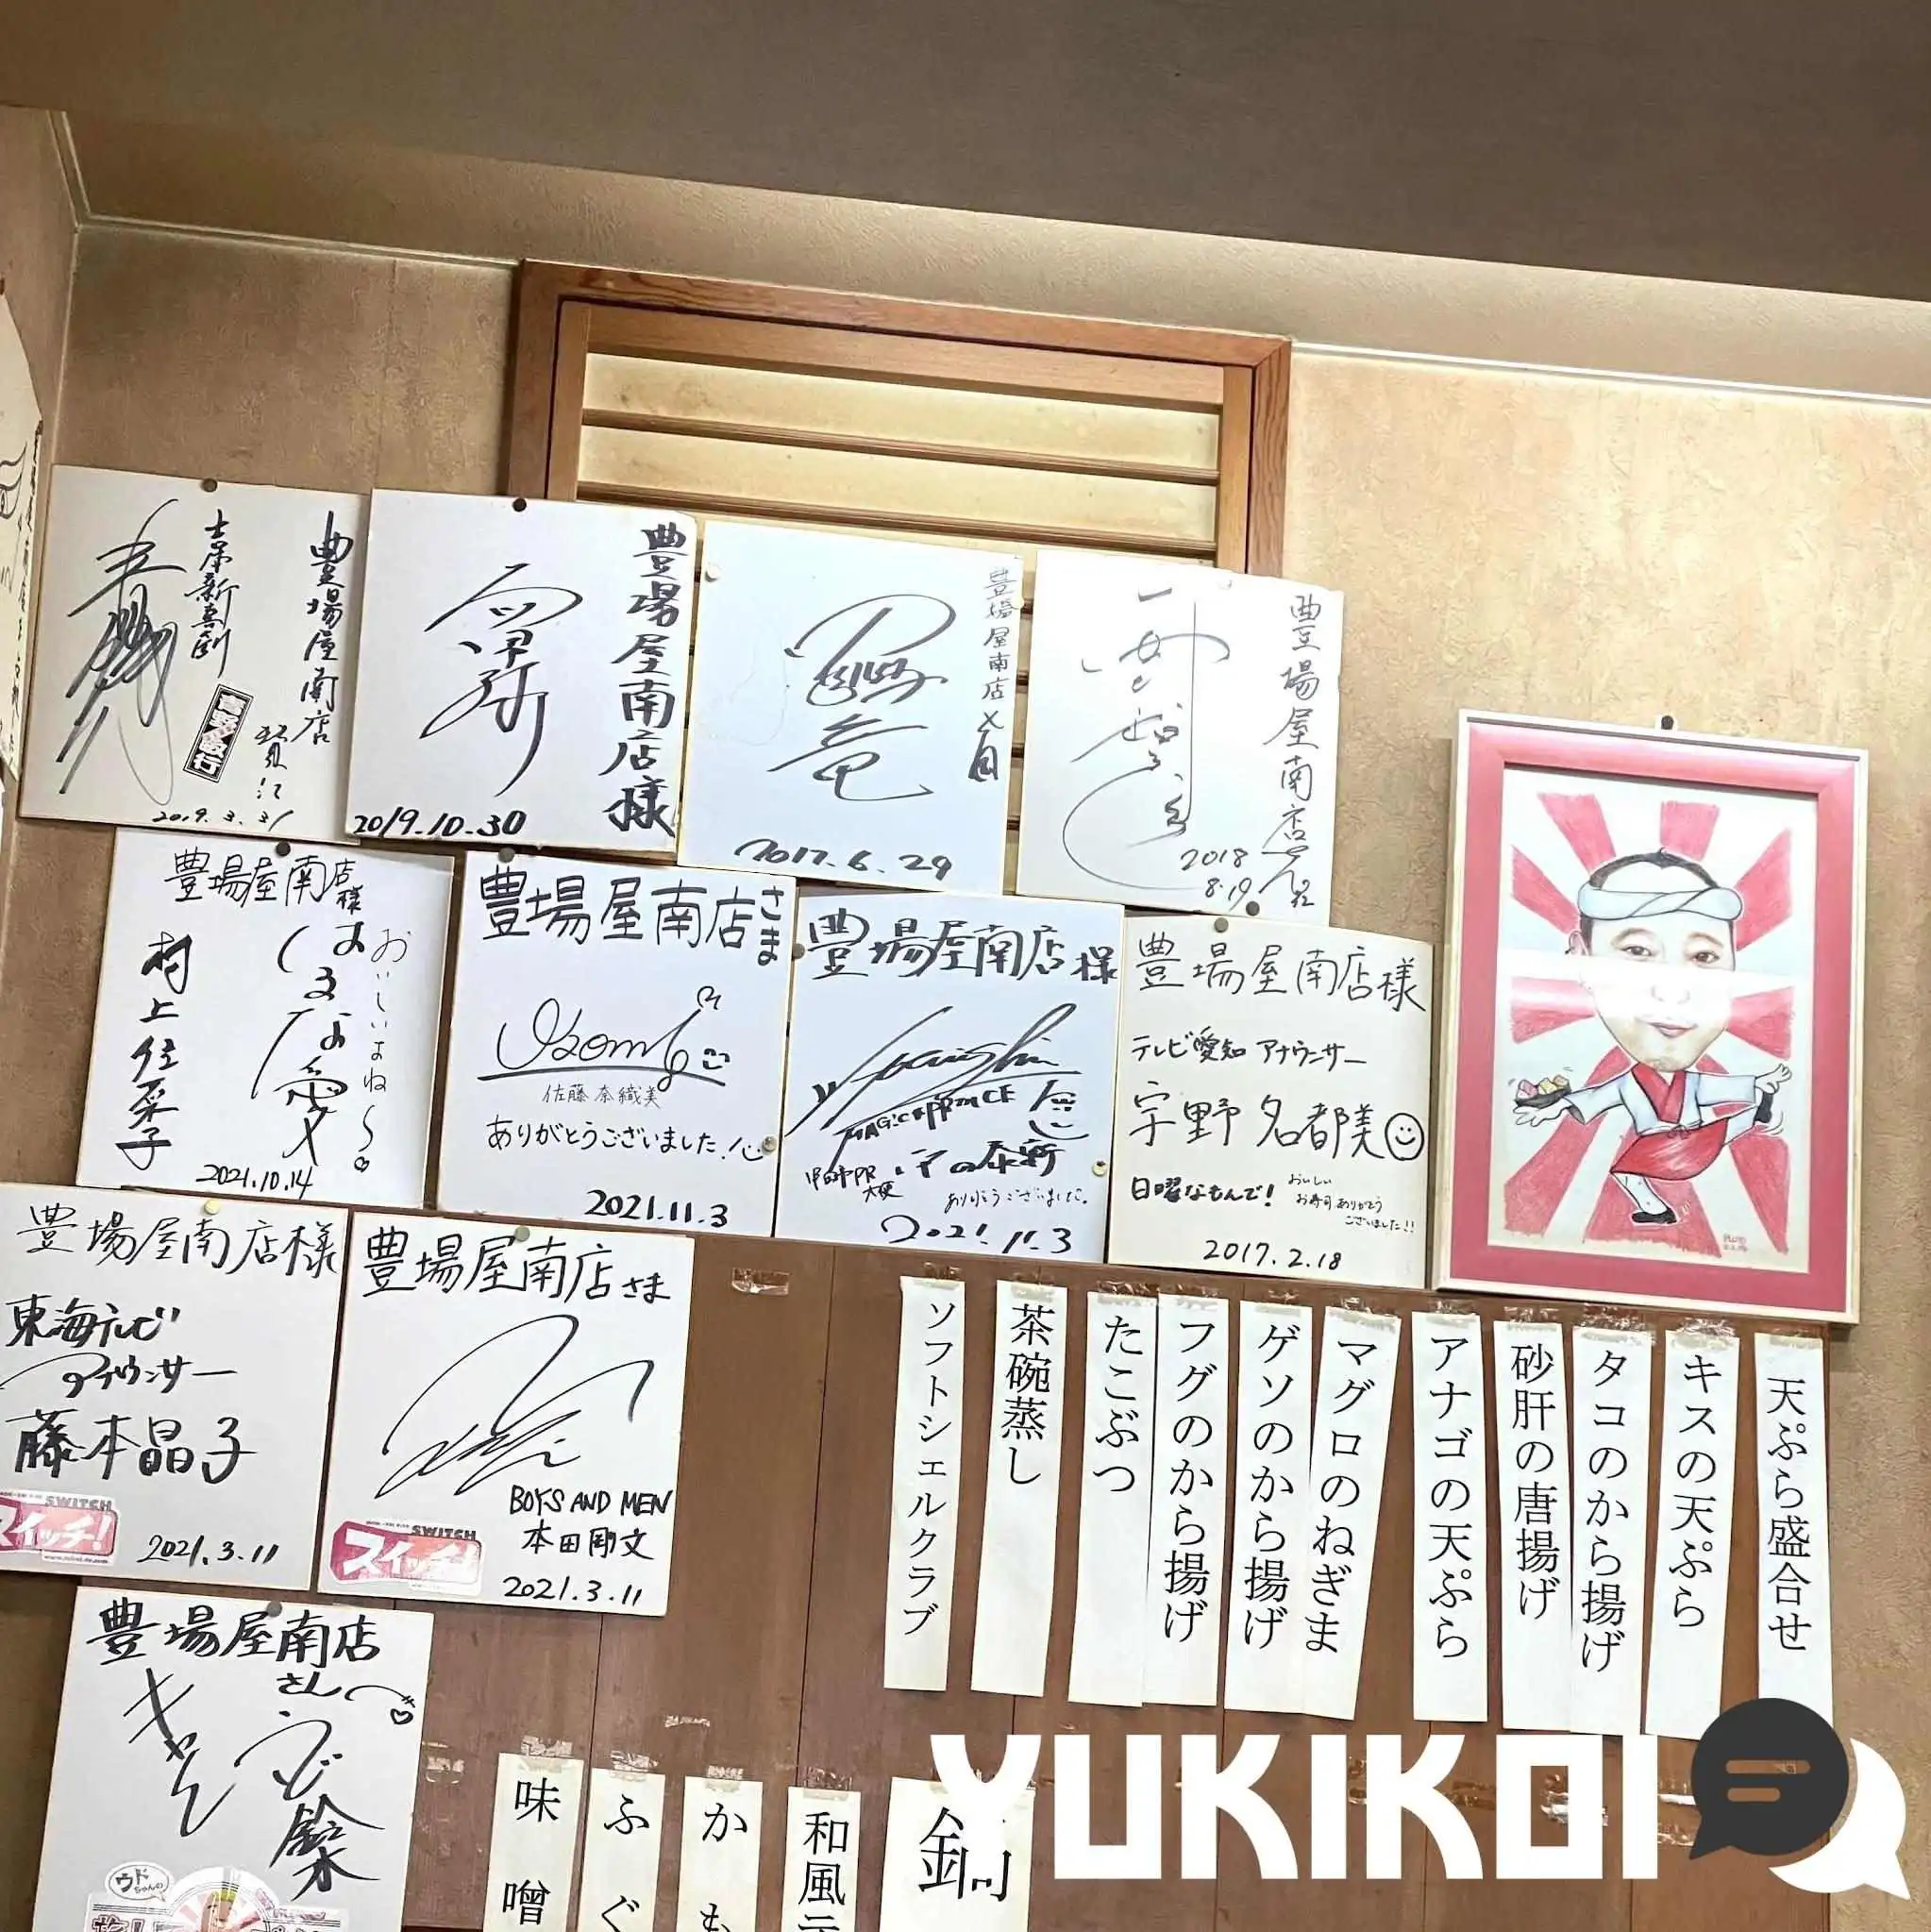 豊場屋南店
吉本新喜劇
吉野敏行
2019.3.31
豊場屋南店様
2019.10.30
豊場屋南店
2017.6.29
豊場屋南店
2018
8.19
豊場屋南店様
おいしいよね〜
はるな愛
村上佳菜子
2021.10.14
豊場屋南店さま
佐藤奈織美
ありがとうございました!
2021.11.3
豊場屋南店様
MAG!C☆PRINCE
ありがとうございました。
2021.11.3
豊場屋南店様
テレビ愛知 アナウンサー
宇野名都美
日曜なもんで!
おいしい
お寿司ありがとう
ございました!!
2017.2.18
豊場屋南店様
東海テレビ
アナウンサー
藤本晶子
SWITCH
スイッチ!
2021.3.11
豊場屋南店さま
BOYS AND MEN
本田剛文
SWITCH
スイッチ!
2021.3.11
豊場屋南店
さん
ウド鈴木
キャイ〜ン
ウド
ちゃんの
天ぷら盛合せ
キスの天ぷら
タコのから揚げ
砂肝の唐揚げ
アナゴの天ぷら
マグロのねぎま
ゲソのから揚げ
フグのから揚げ
たこぶつ
茶碗蒸し
ソフトシェルクラブ
和風
かも
ふぐ
味噌
YUKIKOI